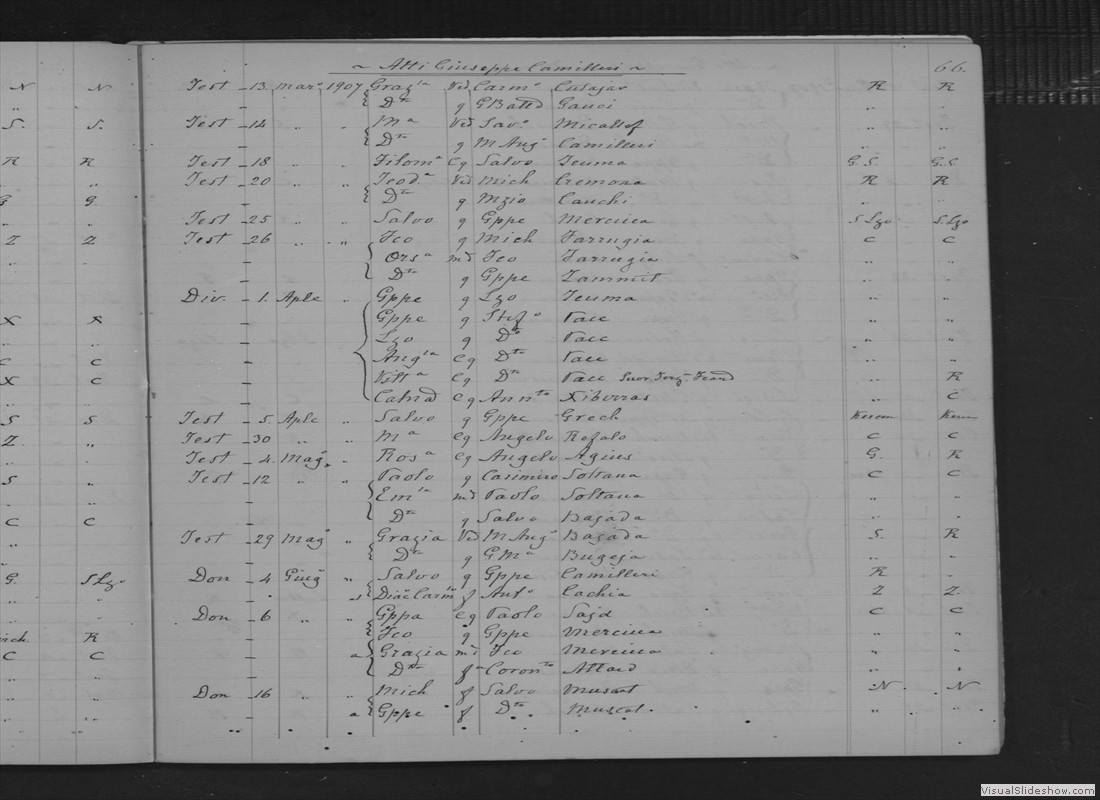 Atti Giuseppe Camilleri 66.
N N Test 13 Marº 1907 Grazia Ved Carmº Cutajar R R
" " Dta g GBatta Gauci " "
S. S. Test 14 " " Mª Ved Savº Micallef " "
Dta g M Angº Camilleri " "
R R Test 18 " " Filomª Cg Salvo Teuma G.C. G.C.
" Test 20 " " Teodª Ved Mich Cremona R R
G G. Dta g Mzio Cauchi " "
" " Test 25 " " Salvo g Gppe Mercieca S Lzo S Lzo
Z Z Test 26 " " Fco g Mich Farrugia C C
Orsª md Fco Farrugia " "
Dta g Gppe Zammit " "
Div. 1. Aple " Gppe g Lzo Teuma " "
X R Gppe g Stefº Pace " "
" " Lzo g Dto Pace " "
C C Angla Cg Dto Pace " "
X C Vittª Cg Dto Pace Suor " R
" " Cg Annto Xiberras " C
S S Test 5. Aple " Salvo g Gppe Grech Kercem Kercem
Z. " Test 30 " " Mª Cg Angelo Refalo C C
" . Test 4. Magº " Rosª Cg Angelo Agius G. R
S " Test 12 " " Paolo g Casimiro Soltana C C
" " Emla md Paolo Soltana " "
C C Dta g Salvo Bajada " "
" Test 29 Magº " Grazia Ved M Angº Bajada S. R
" " Dta g G Mª Bugeja " "
G. S Lzo Don 4 Giugº " Salvo g Gppe Camilleri R .
" " Carmº f Antº Cachia Z Z
" " Don 6 " " Gppa Cg Paolo Sajd C C
R Fco g Gppe Mercieca " "
C C a Grazia md Fco Mercieca " "
" " Dta f Coronto Attard " "
" " Don 16 " " Mich f Salvo Muscat N N
" " a Gppe f Dto Muscat. " "
VisualSlideshow.com